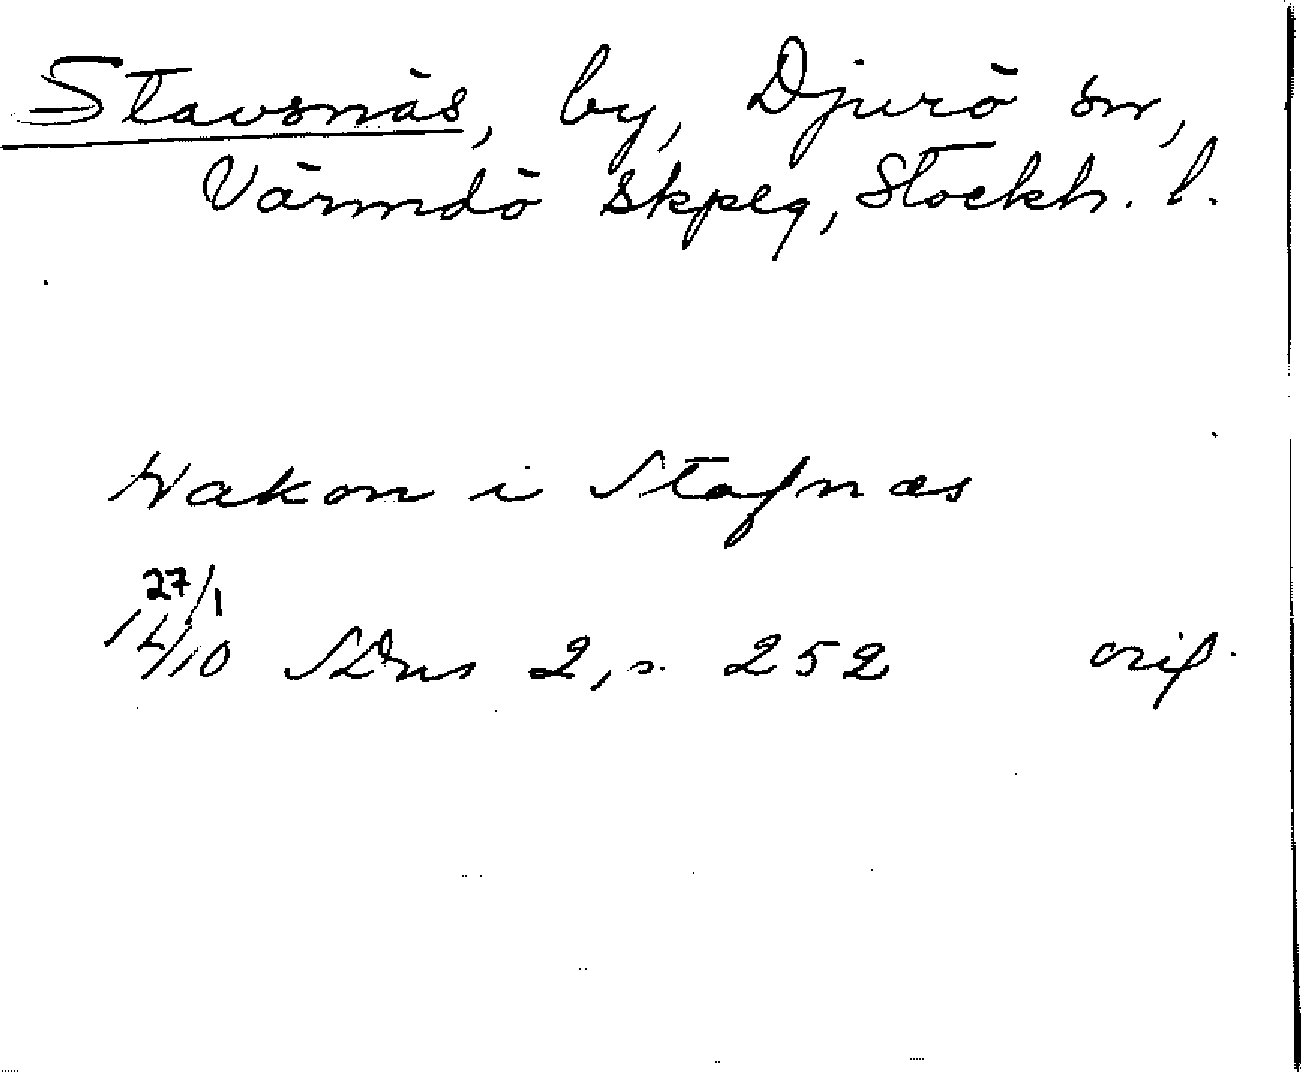 Stavsnäs, by, Djurö sn,
Värmdö skpsg, Stockh. l.
Hakon i Stafnæs
27/1
1410 SDns 2, s. 252 orig.